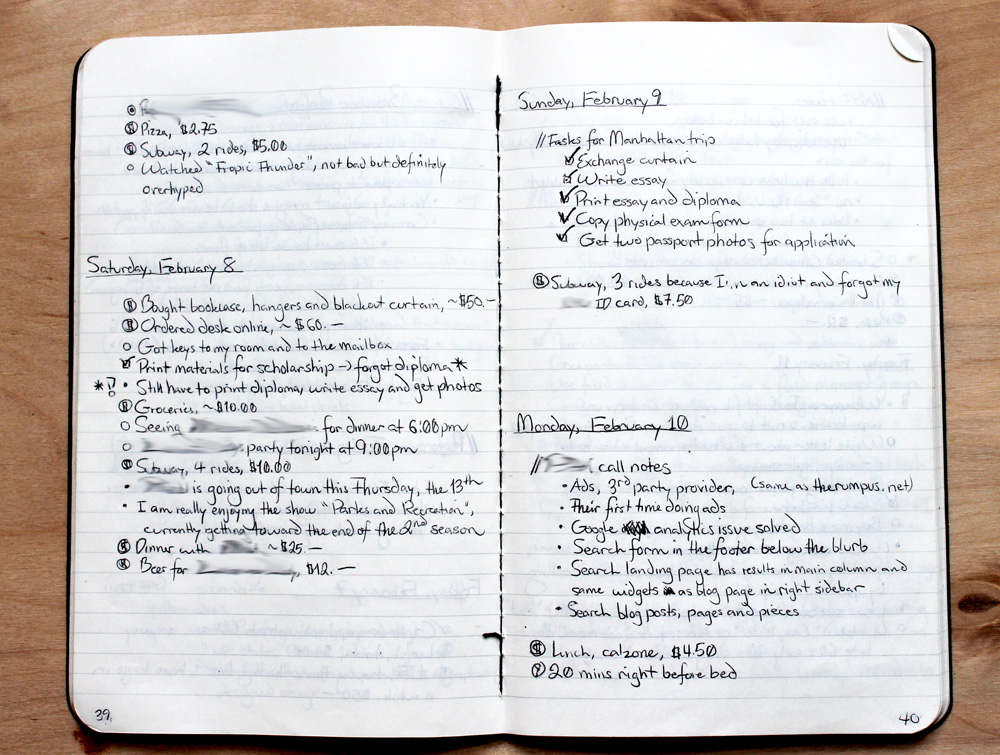 Pizza, $2.75
Subway, 2 rides, $5.00
Watched "Tropic Thunder", not bad but definitely
overhyped
Saturday, February 8
Bought bookcase, hangers and blackout curtain, ~$50.—
Ordered desk online, ~$60.—
Got keys to my room and to the mailbox
Print materials for scholarship -> forgot diploma*
*! Still have to print diploma, write essay and get photos
Groceries, ~$10.00
Seeing for dinner at 6:00pm
party tonight at 9:00pm
Subway, 4 rides, $10.00
is going out of town this Thursday, the 13th
I am really enjoying the show "Parks and Recreation",
currently getting toward the end of the 2nd season
Dinner with ~$25.—
Beer for , $12.—
39
Sunday, February 9
// Tasks for Manhattan trip
Exchange curtain
Write essay
Print essay and diploma
Copy physical exam form
Get two passport photos for application
Subway, 3 rides because I'm an idiot and forgot my
ID card, $7.50
Monday, February 10
// call notes
Ads, 3rd party provider, (same as therumpus.net)
Their first time doing ads
Google analytics issue solved
Search form in the footer below the blurb
Search landing page has results in main column and
same widgets as blog page in right sidebar
Search blog posts, pages and pieces
Lunch, calzone, $4.50
20 mins right before bed
40